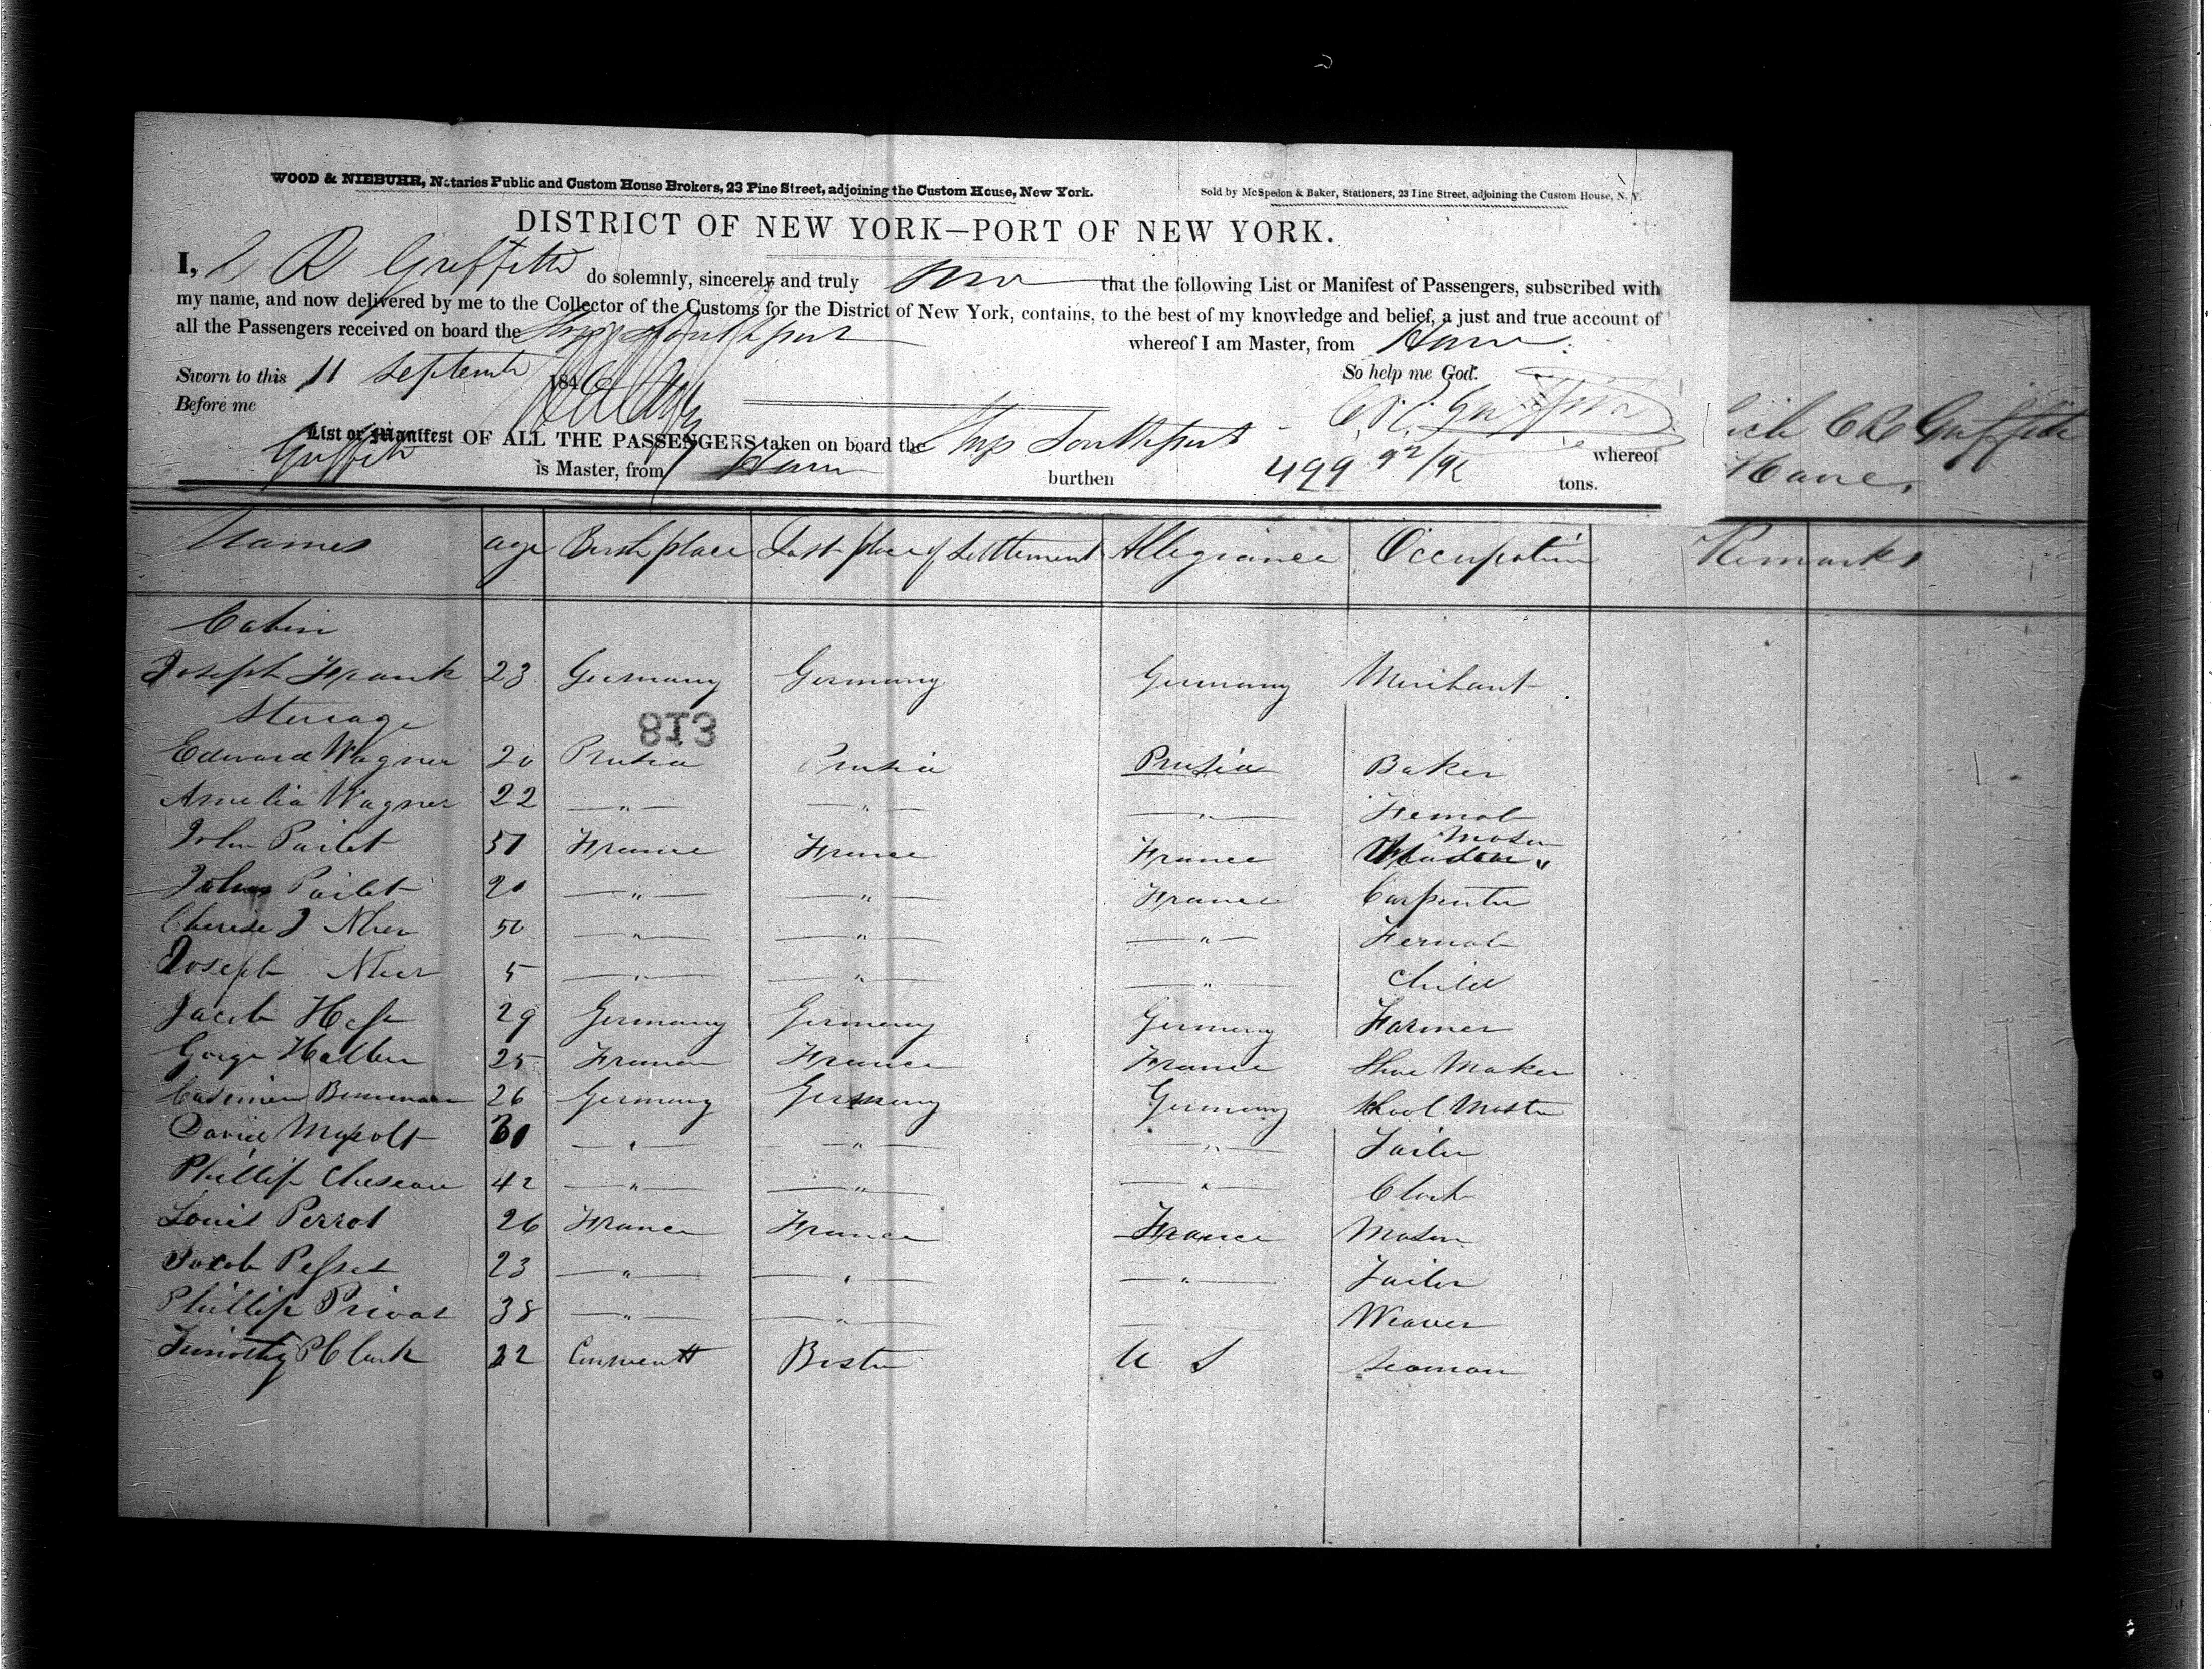 WOOD & NIEBUHR, Notaries Public and Custom House Brokers, 23 Pine Street, adjoining the Custom House, New York.
Sold by McSpedon & Baker, Stationers, 23 Pine Street, adjoining the Custom House, N. Y.
DISTRICT OF NEW YORK—PORT OF NEW YORK.
I, C R Griffith do solemnly, sincerely and truly swear that the following List or Manifest of Passengers, subscribed with
my name, and now delivered by me to the Collector of the Customs for the District of New York, contains, to the best of my knowledge and belief, a just and true account of
all the Passengers received on board the Ship Southport whereof I am Master, from Havre
Sworn to this 11 September 1846 So help me God.
Before me C R Griffith
List or Manifest OF ALL THE PASSENGERS taken on board the Ship Southport whereof
Griffith is Master, from Havre burthen 499 92/95 tons.
C R Griffith
Havre,
Names age Birth place Last place of Settlement Allegiance Occupation Remarks
Cabin
Joseph Frank 23 Germany Germany Germany Merchant
Steerage
813
Edward Wagner 20 Prusia Prusia Prusia Baker
Amelia Wagner 22 " " " Female
John Pailet 51 France France France Mason "
Pailet 20 " " France Carpenter
50 " " " Female
Joseph 5 " " " Child
Jacob 29 Germany Germany Germany Farmer
George 25 France France France Shoe Maker
26 Germany Germany Germany School Master
David 30 " " " Tailor
Phillip 42 " " " Clerk
Louis Perrot 26 France France France Mason
Jacob 23 " " " Tailor
Phillip Privat 38 " " Weaver
Timothy P Clark 22 Boston U S Seaman